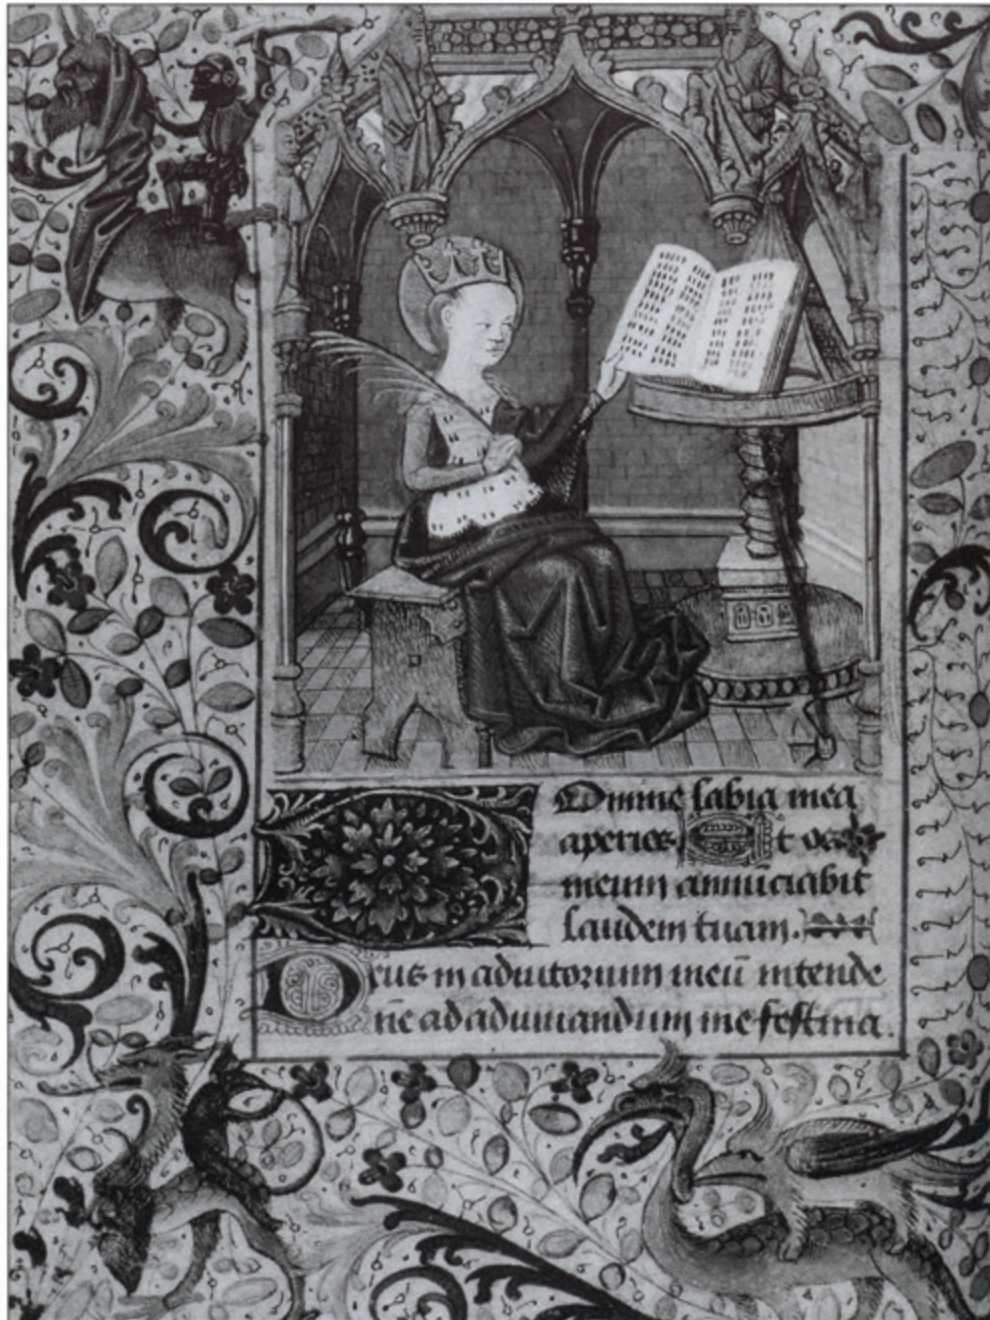 Domine labia mea
aperies Et os
meum annūciabit
laudem tuam.
Deus in adiutorium meū intende
ne ad adiuuandum me festina.